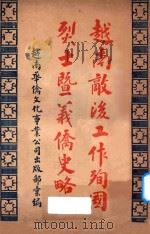 越南敵後工作殉國
烈士暨義僑史略
越南華僑文化事業公司出版部彙編